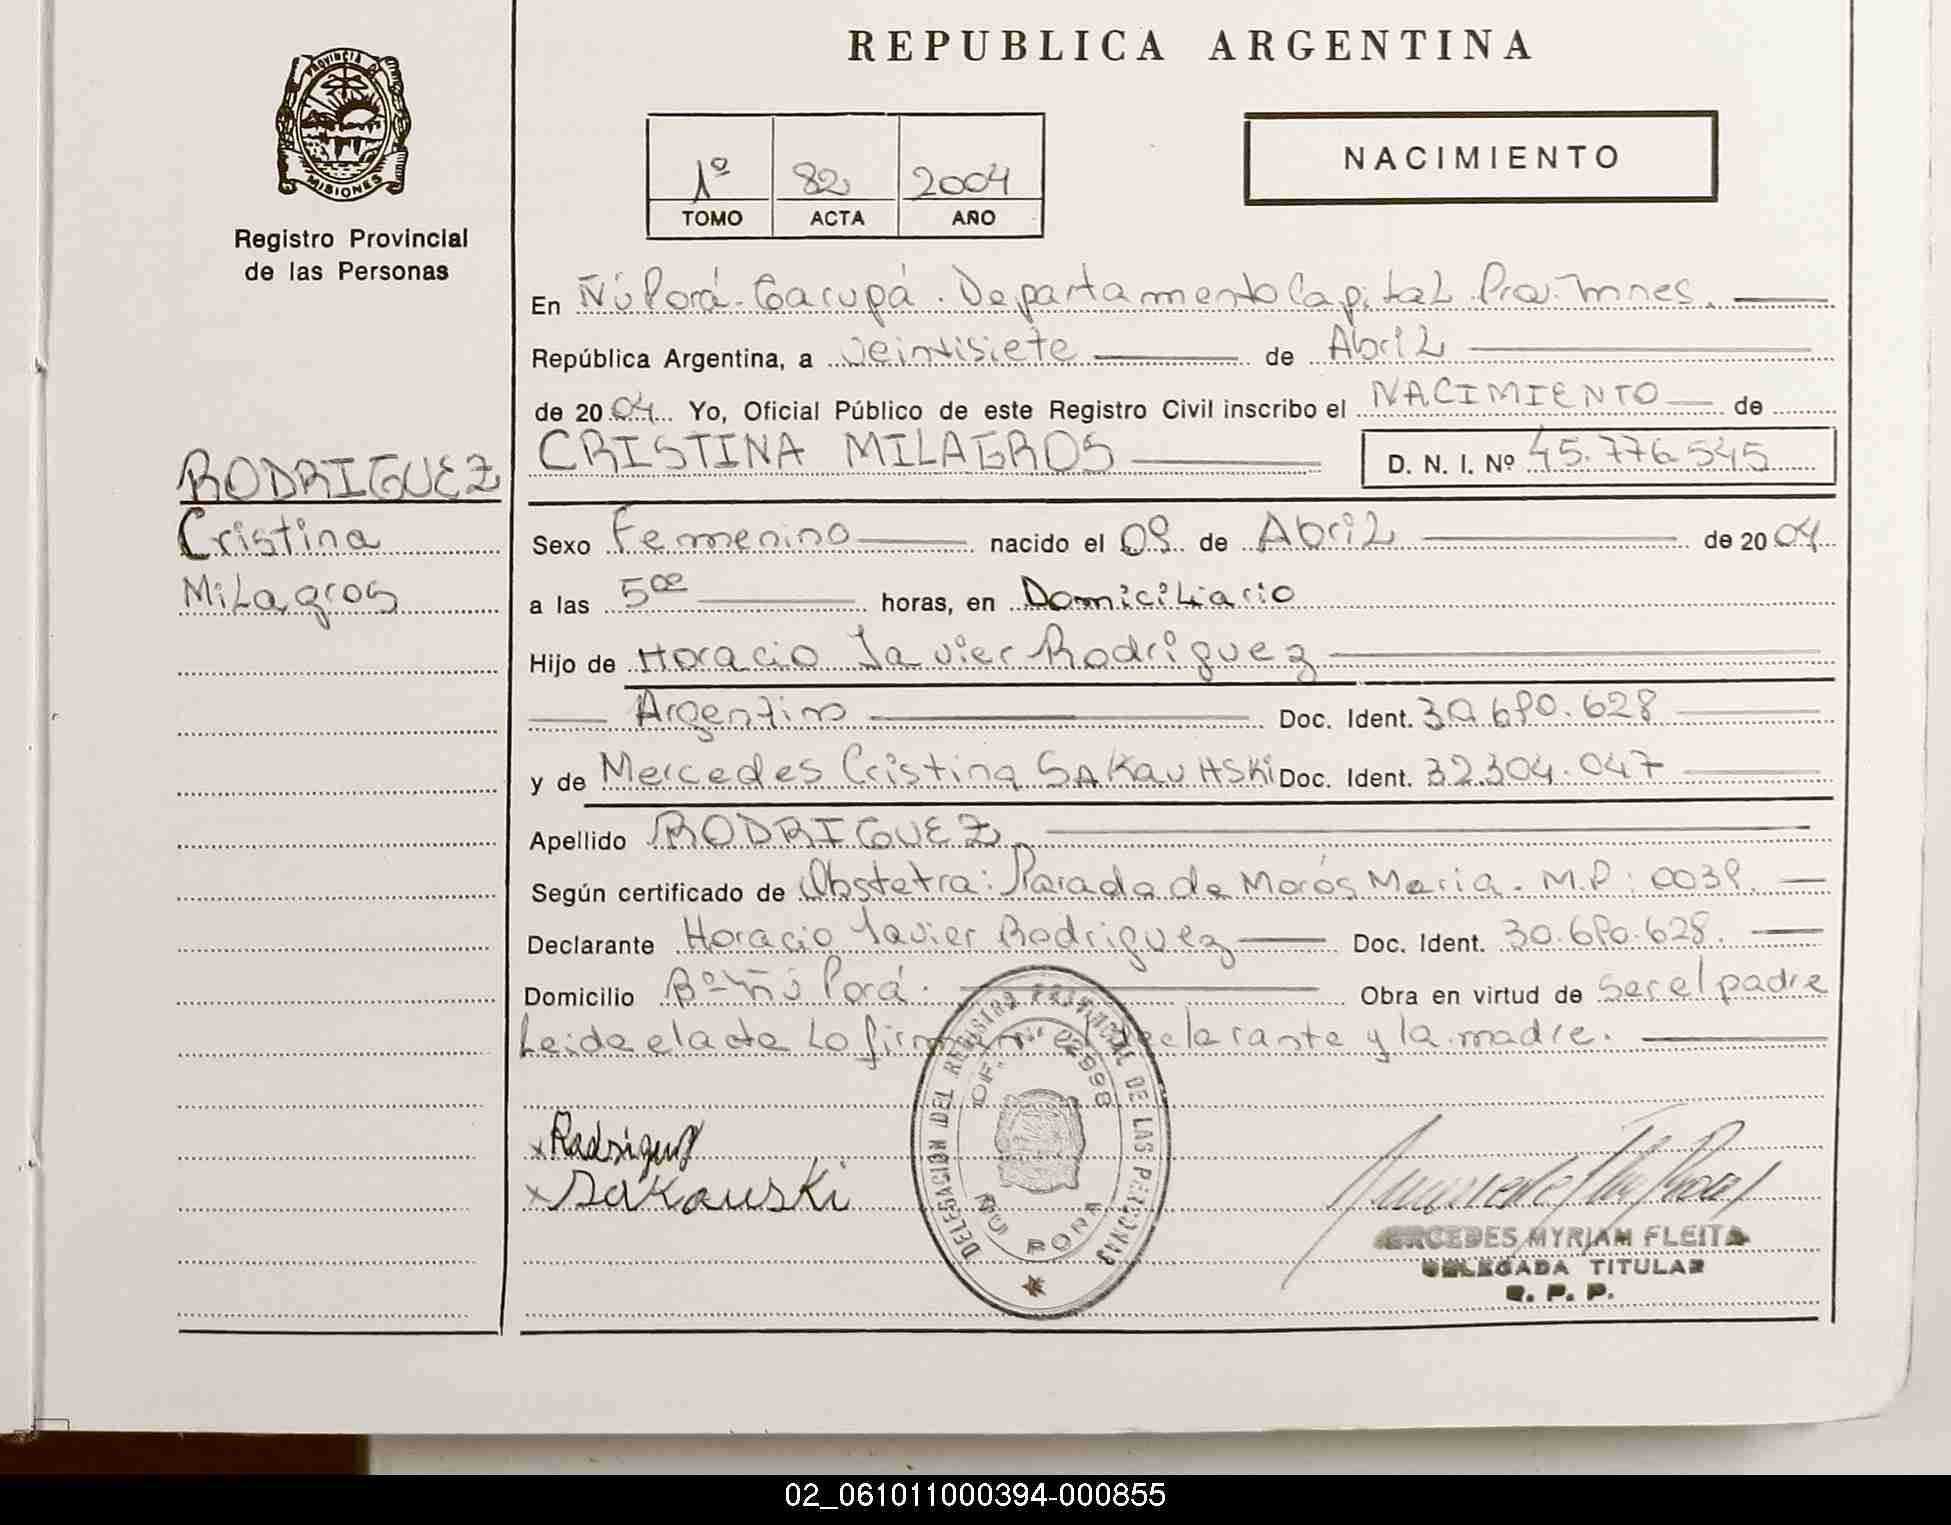 REPUBLICA ARGENTINA
PROVINCIA DE
MISIONES
Registro Provincial
de las Personas
1º 82 2004
TOMO ACTA AÑO
NACIMIENTO
En Ñú Porá. Garupá. Departamento Capital. Prov. Mnes.
República Argentina, a veintisiete de Abril
de 2004 Yo, Oficial Público de este Registro Civil inscribo el NACIMIENTO de
CRISTINA MILAGROS D. N. I. Nº 45.776.545
RODRIGUEZ
Cristina
Milagros
Sexo Femenino nacido el 09 de Abril de 2004
a las 5 horas, en Domiciliario
Hijo de Horacio Javier Rodriguez
Argentino Doc. Ident. 30.680.628
y de Mercedes Cristina SAKAUSKi Doc. Ident. 32.304.047
Apellido RODRIGUEZ
Según certificado de Obstetra: Parada de Morós Maria. M.P: 0039.
Declarante Horacio Javier Rodriguez Doc. Ident. 30.680.628.
Domicilio Bº Ñú Porá. Obra en virtud de ser el padre
Leida el acta Lo firman el declarante y la madre.
x Rodriguez
x Sakauski
DELEGACION DEL REGISTRO PROVINCIAL DE LAS PERSONAS
OF. Nº 02998
ÑU PORA
MERCEDES MYRIAM FLEITA
DELEGADA TITULAR
R. P. P.
02_061011000394-000855